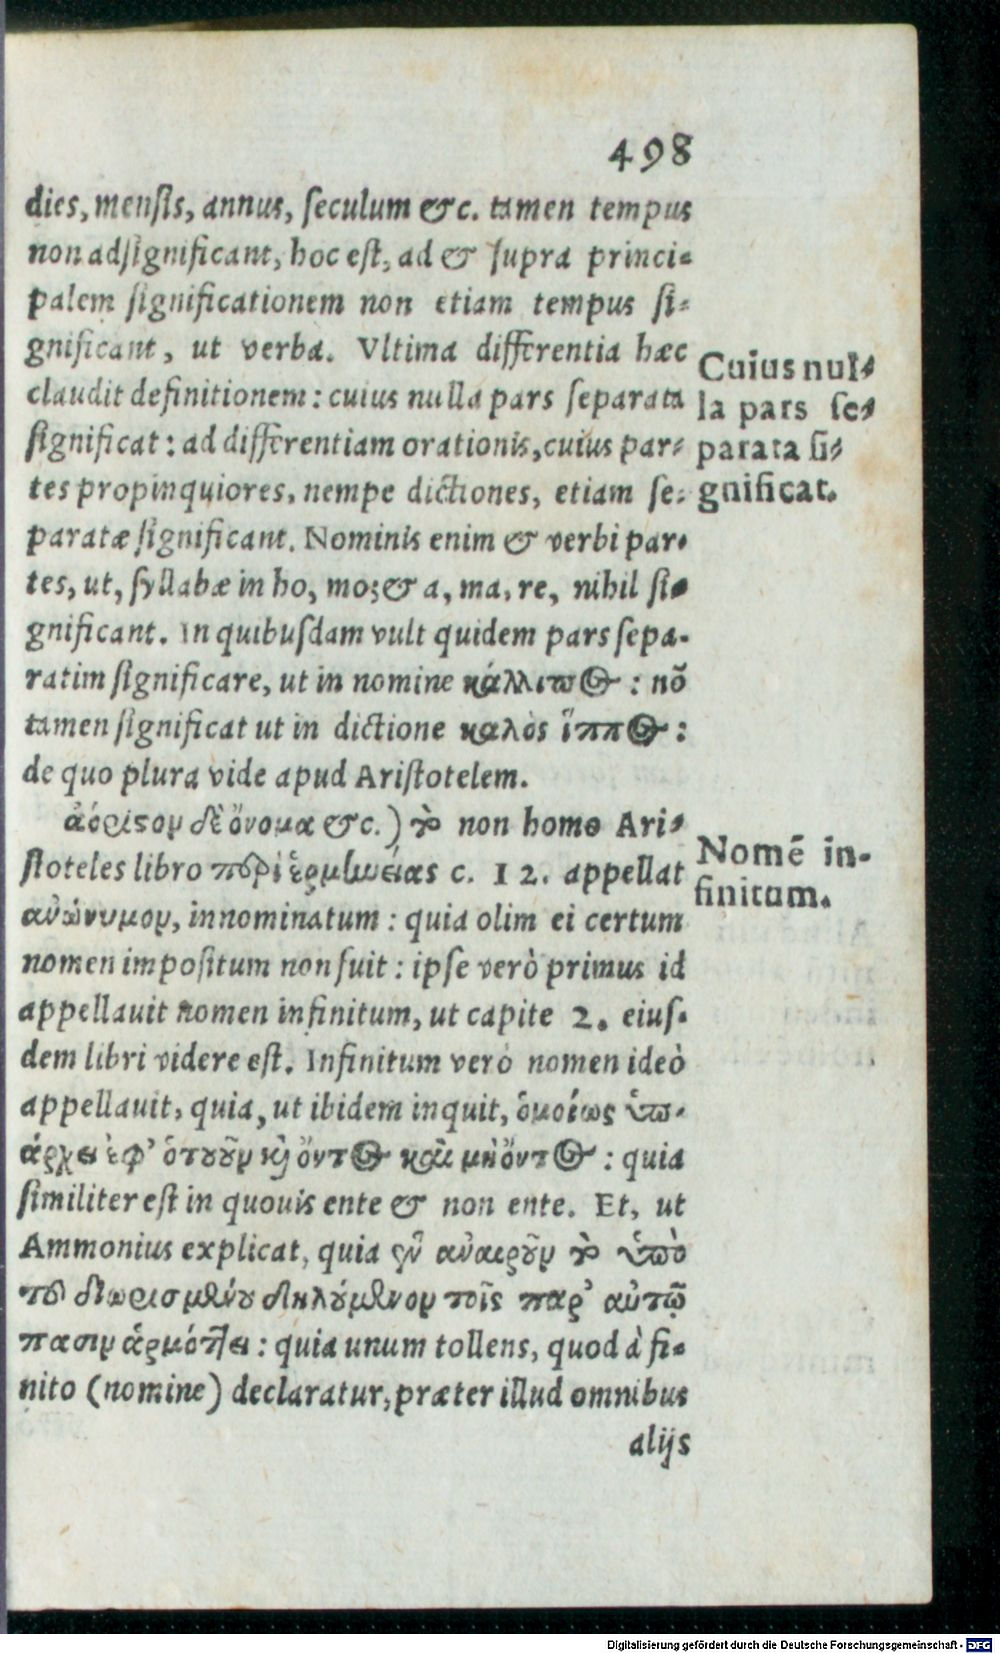 498
dies, mensis, annus, seculum &c. tamen tempus
non adsignificant, hoc est, ad & supra princi-
palem significationem non etiam tempus si-
gnificant, ut verba. Vltima differentia hæc
claudit definitionem: cuius nulla pars separata
significat: ad differentiam orationis, cuius par-
tes propinquiores, nempe dictiones, etiam se-
paratæ significant. Nominis enim & verbi par-
tes, ut, syllabæ in ho, mo; & a, ma, re, nihil si-
gnificant. In quibusdam vult quidem pars sepa-
ratim significare, ut in nomine κάλλιπος: nõ
tamen significat ut in dictione καλὸς ἵππος:
de quo plura vide apud Aristotelem.
Cuius nul-
la pars se-
parata si-
gnificat.
ἀόριςον δὲ ὄνομα &c.) τὸ non homo Ari-
stoteles libro περὶ ἑρμηνείας c. 12. appellat
ἀνώνυμον, innominatum: quia olim ei certum
nomen impositum non fuit: ipse verò primus id
appellauit nomen infinitum, ut capite 2. eius-
dem libri videre est. Infinitum verò nomen ideò
appellauit, quia, ut ibidem inquit, ὁμοίως ὑπ-
άρχει ἐφ' ὁτουοῦν καὶ ὄντος καὶ μὴ ὄντος: quia
similiter est in quouis ente & non ente. Et, ut
Ammonius explicat, quia ἓν ἀναιροῦν τὸ ὑπὸ
τοῦ διωρισμένου δηλούμενον τοῖς παρ' αὐτῷ
πασιν ἁρμόττει: quia unum tollens, quod à fi-
nito (nomine) declaratur, præter illud omnibus
alijs
Nomē in-
finitum.
Digitalisierung gefördert durch die Deutsche Forschungsgemeinschaft - DFG